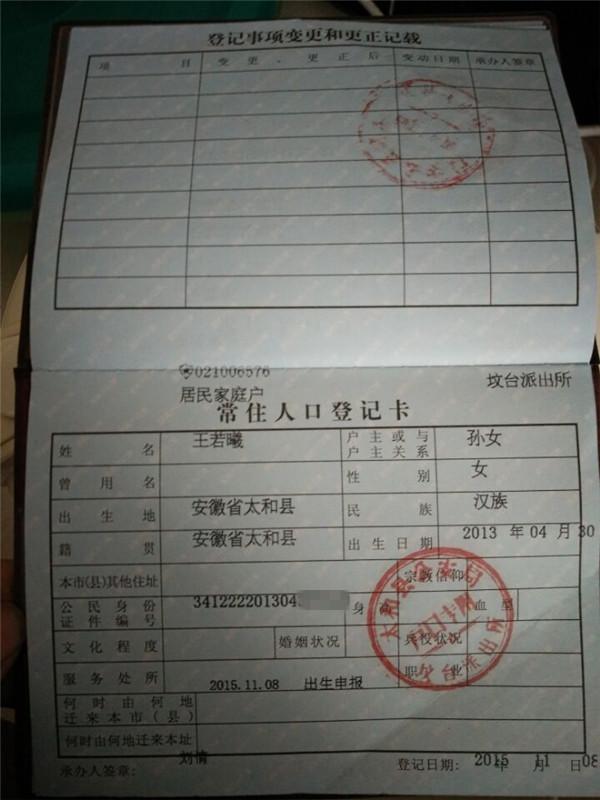 登记事项变更和更正记载
项目 变更、更正后 变动日期 承办人签章
021006576
坟台派出所
居民家庭户
常住人口登记卡
姓名 王若曦 户主或与户主关系 孙女
曾用名 性别 女
出生地 安徽省太和县 民族 汉族
籍贯 安徽省太和县 出生日期 2013 年 04 月 30
本市(县)其他住址 宗教信仰
公民身份证件编号 3412222013043 身 血型
文化程度 婚姻状况 兵役状况
服务处所 2015.11.08 出生申报 职业
何时由何地迁来本市(县)
何时由何地迁来本址
承办人签章: 刘情 登记日期: 2015 年 11 月 08 日
太和县公安局
户口专用
坟台派出所